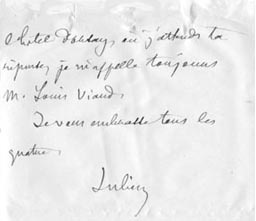 l'hôtel d'Orsay, où j'attends ta
réponse, je m'appelle toujours
M. Louis Viaud.
Je vous embrasse tous les
quatre.
Julien